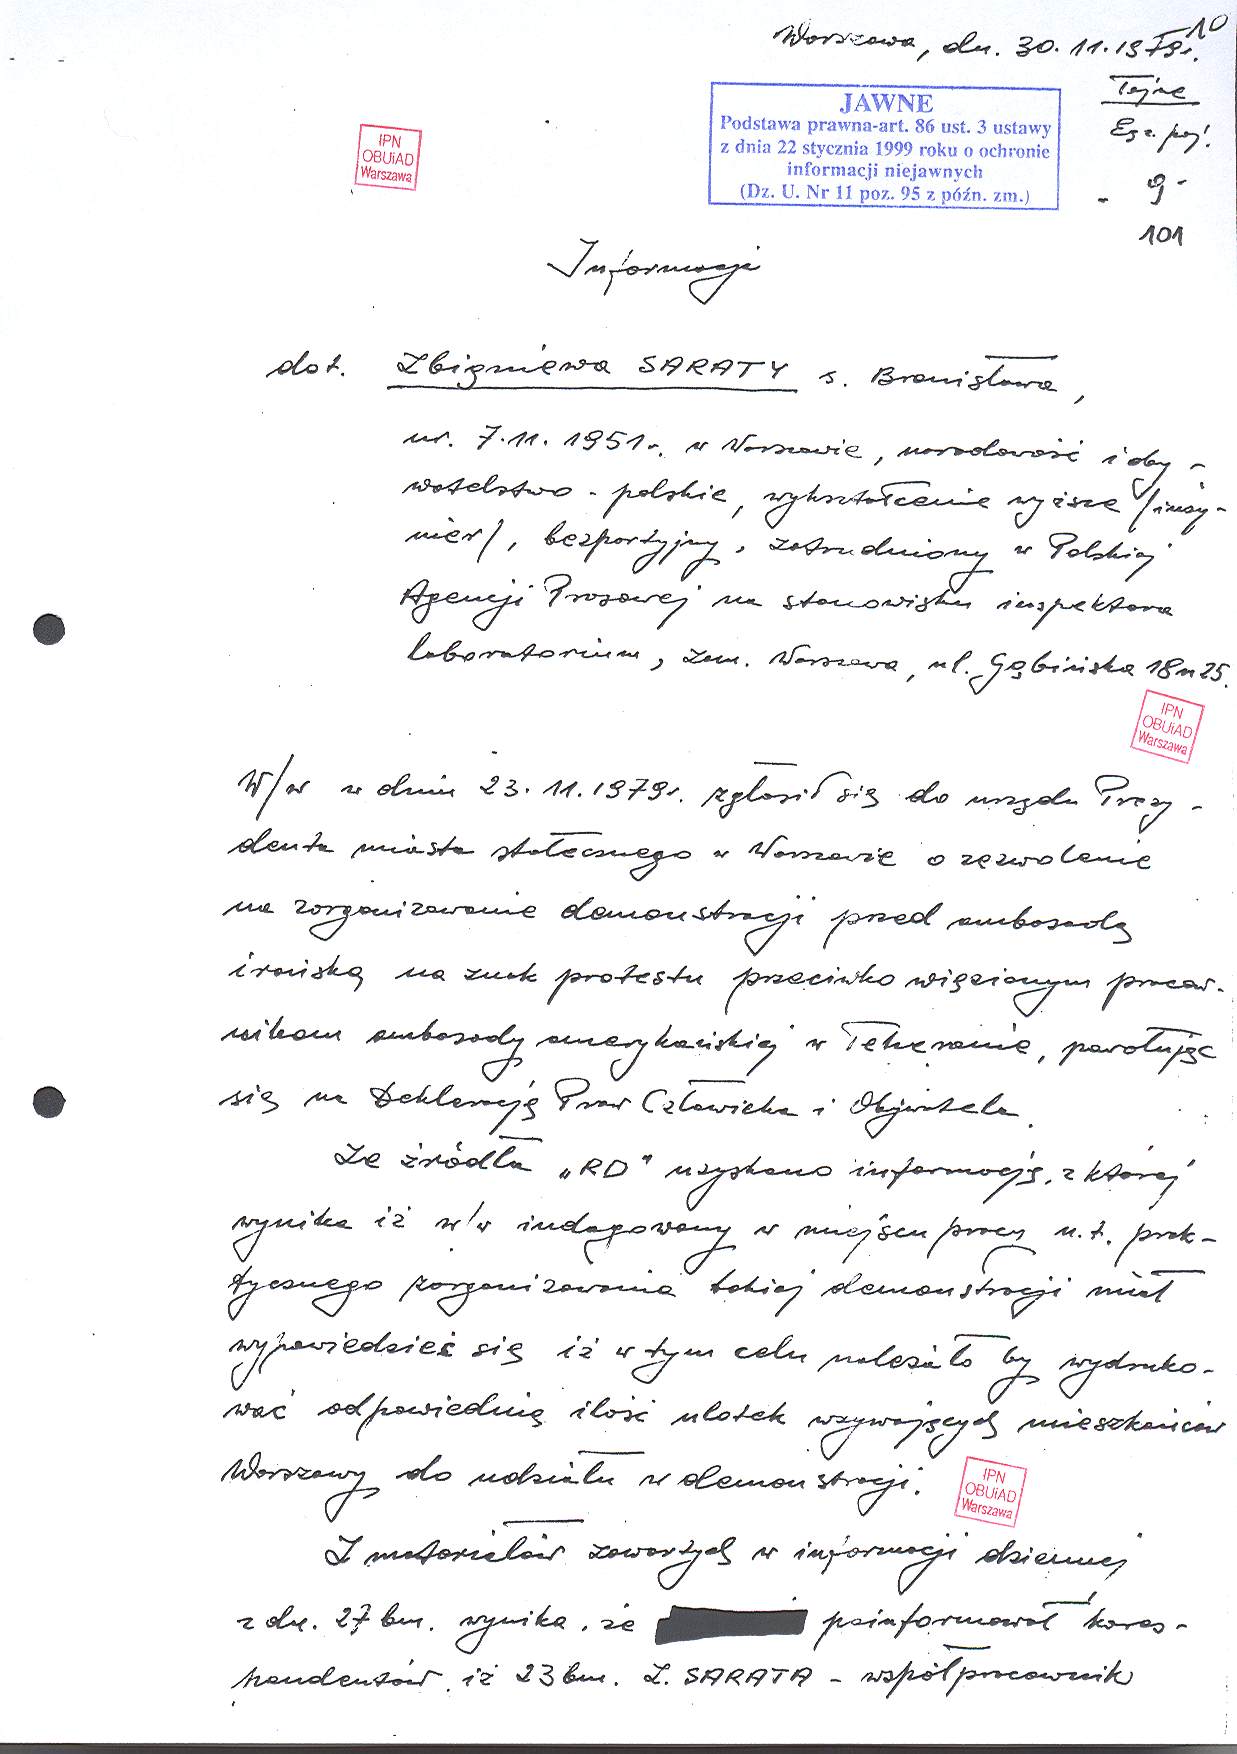 10
Warszawa, dn. 30.11.1979r.
Tajne
Egz. poj.
- 9 -
101
JAWNE
Podstawa prawna-art. 86 ust. 3 ustawy
z dnia 22 stycznia 1999 roku o ochronie
informacji niejawnych
(Dz. U. Nr 11 poz. 95 z późn. zm.)
IPN
OBUiAD
Warszawa
Informacja
dot. Zbigniewa SARATY s. Bronisława,
ur. 7.11.1951r. w Warszawie, narodowość i oby-
watelstwo - polskie, wykształcenie wyższe /inży-
nier/, bezpartyjny, zatrudniony w Polskiej
Agencji Prasowej na stanowisku inspektora
laboratorium, zam. Warszawa, ul. Gąbińska 18 m 25.
IPN
OBUiAD
Warszawa
W/w w dniu 23.11.1979r. zgłosił się do urzędu Prezy-
denta miasta stołecznego w Warszawie o zezwolenie
na zorganizowanie demonstracji przed ambasadą
irańską na znak protestu przeciwko więzionym pracow-
nikom ambasady amerykańskiej w Teheranie, powołując
się na Deklarację Praw Człowieka i Obywatela.
Ze źródła „RD" uzyskano informację, z której
wynika iż w/w indagowany w miejscu pracy n.t. prak-
tycznego zorganizowania takiej demonstracji miał
wypowiedzieć się iż w tym celu należało by wydruko-
wać odpowiednią ilość ulotek wzywających mieszkańców
Warszawy do udziału w demonstracji.
IPN
OBUiAD
Warszawa
Z materiałów zawartych w informacji dziennej
z dn. 27 bm. wynika, że poinformował kores-
pondentów, iż 23 bm. Z. SARATA - współpracownik